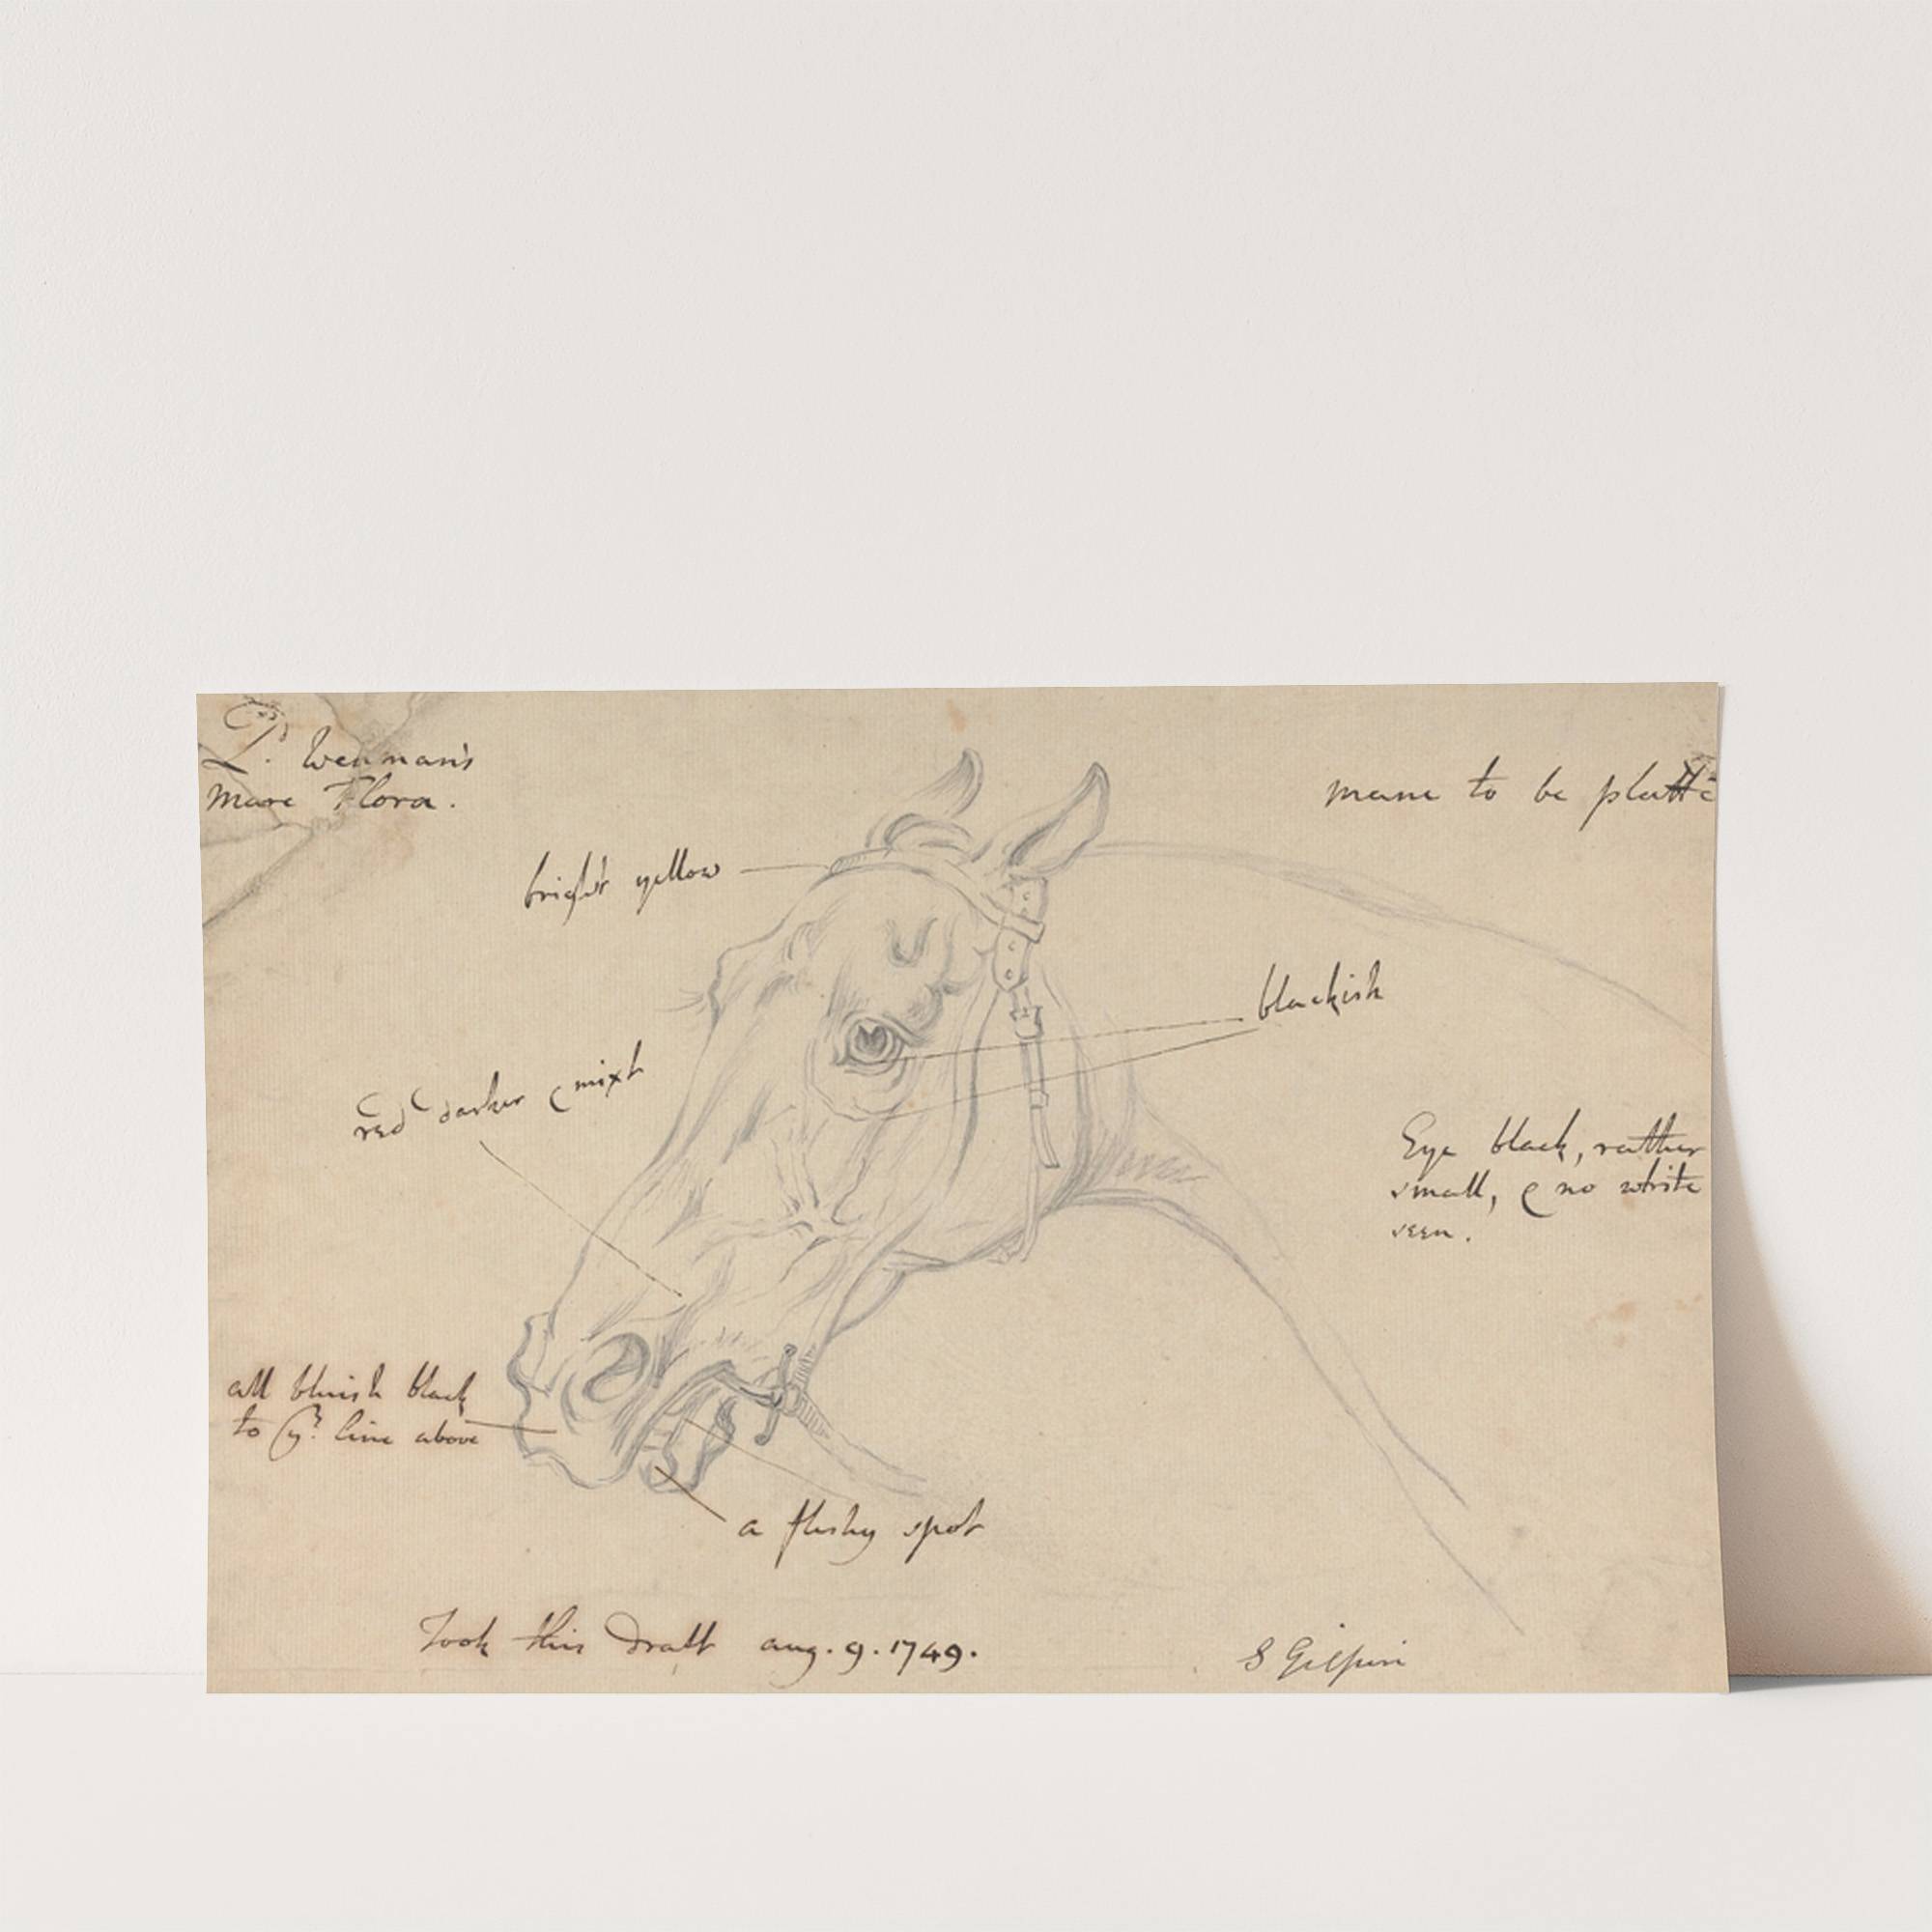 L. Wenman's
mare Flora.
mane to be platt
bright yellow
blackish
red darker & mixt
Eye black, rather
small, & no white
seen.
all bluish black
to yᵉ line above
a fleshy spot
Took this Draft aug. 9. 1749.
S Gilpin